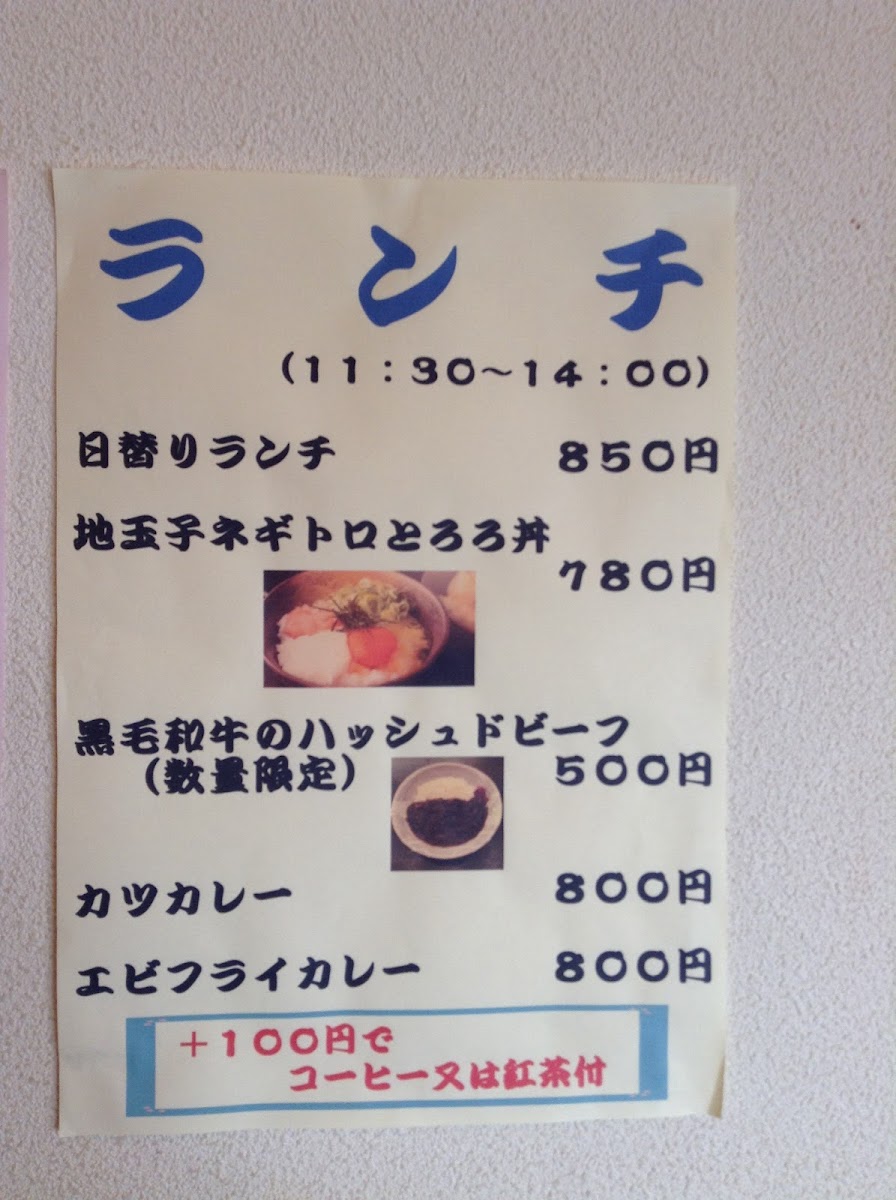 ランチ
（１１：３０～１４：００）
日替りランチ ８５０円
地玉子ネギトロとろろ丼
７８０円
黒毛和牛のハッシュドビーフ
（数量限定） ５００円
カツカレー ８００円
エビフライカレー ８００円
＋１００円で
コーヒー又は紅茶付